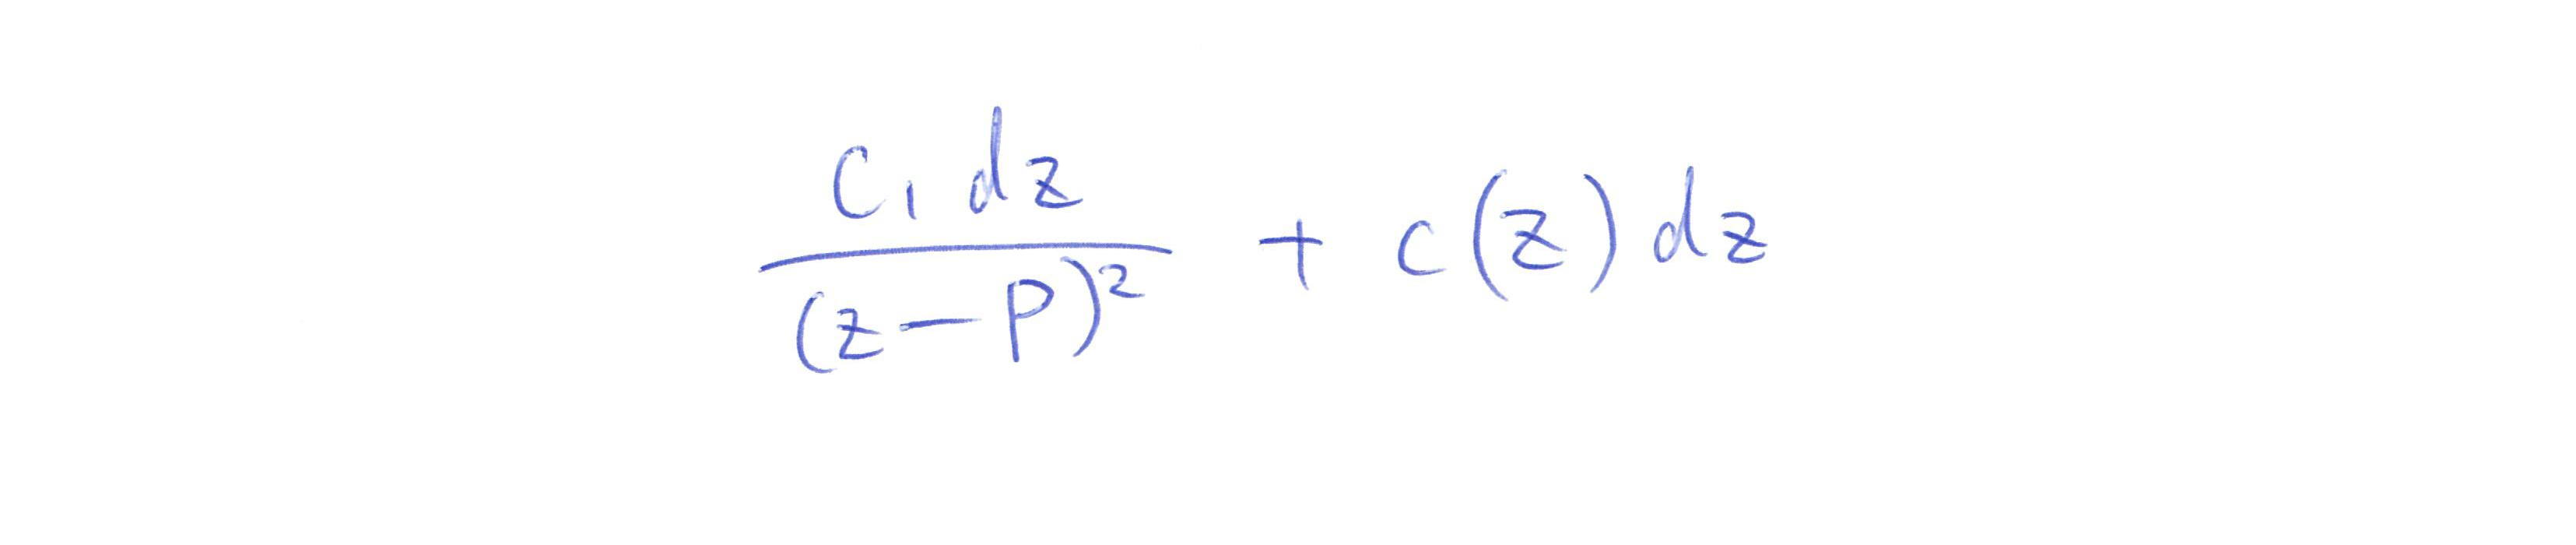 \frac{c_1 dz}{(z-p)^2} + c(z) dz